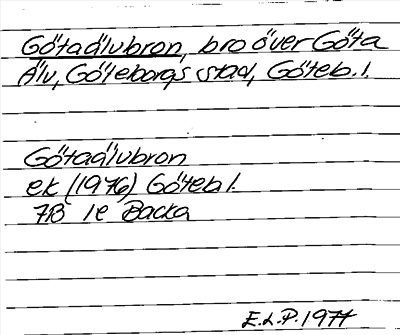 Götaälvbron, bro över Göta
Älv, Göteborgs stad, Göteb. l.
Götaälvbron
ek (1976) Göteb l.
7B 1e Backa
E.L.P. 1977